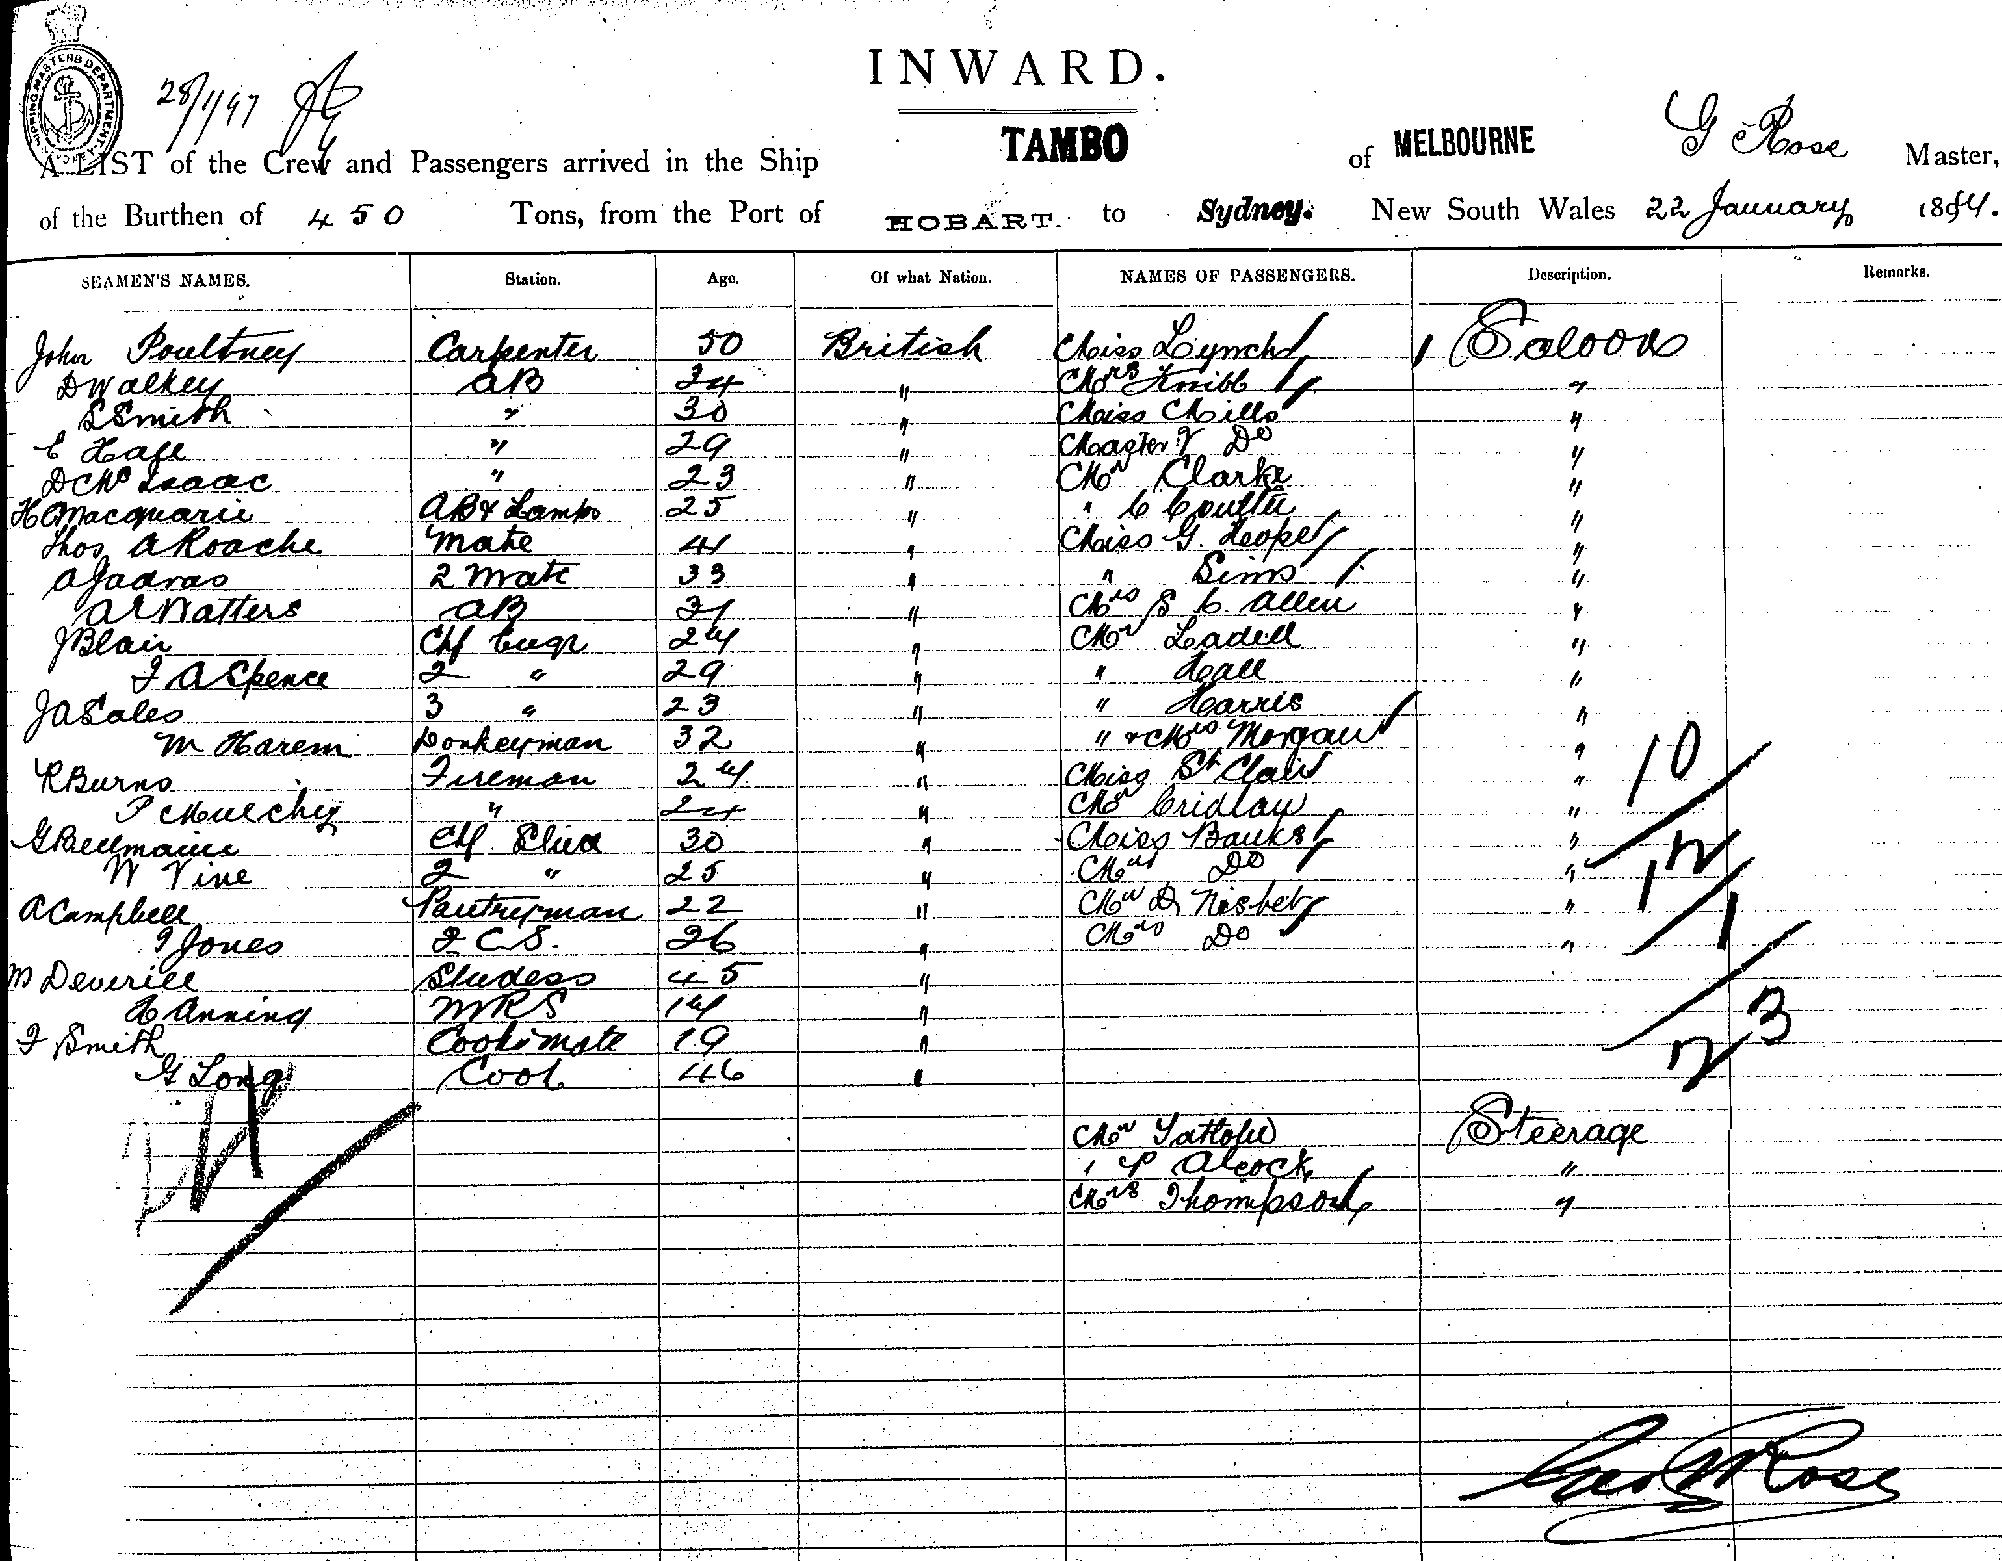 SHIPPING MASTER'S DEPARTMENT
28/1/97
INWARD.
A LIST of the Crew and Passengers arrived in the Ship TAMBO of MELBOURNE G Rose Master,
of the Burthen of 450 Tons, from the Port of HOBART. to Sydney. New South Wales 22 January 1894.
SEAMEN'S NAMES. Station. Age. Of what Nation. NAMES OF PASSENGERS. Description. Remarks.
John Poultney Carpenter 50 British Miss Lynch 1 Saloon
D Walkey AB 34 " Mrs Knibb "
S Smith " 30 " Miss Mills "
E Hall " 29 " Master V Do "
D McIsaac " 23 " Mr Clarke "
H Macquarie AB & Lamps 25 " " C Coulter "
Thos A Roache Mate 41 " Miss G. Hope "
A Jadras 2 Mate 33 " " Sims "
A E Watters AB 31 " Mrs S C Allen "
J Blair Chf Engr 24 " Mr Ladell "
F A Spence 2 " 29 " " Hall "
J A Sales 3 " 23 " " Harris "
M Harem Donkeyman 32 " " & Mrs Morgan "
R Burns Fireman 24 " Miss St Clair "
P Mulchy " 24 " Mr Cridlan "
G Bellmaine Chf Stwd 30 " Miss Banks "
W Vine 2 " 25 " Mrs Do "
A Campbell Pantryman 22 " Mr D Nisbet "
J Jones 2 C S. 26 " Mrs Do "
M Deverill Studess 45 "
H Anning MRS 14 "
F Smith Cooks mate 19 "
G Long Cook 46 "
10
12
1
23
24
Mr Steerage
" P Alcock "
Mrs Thompson "
Geo M Rose